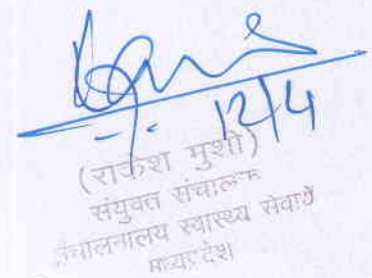 12/4
(राकेश मुंशी)
संयुक्त संचालक
संचालनालय स्वास्थ्य सेवायें
मध्यप्रदेश